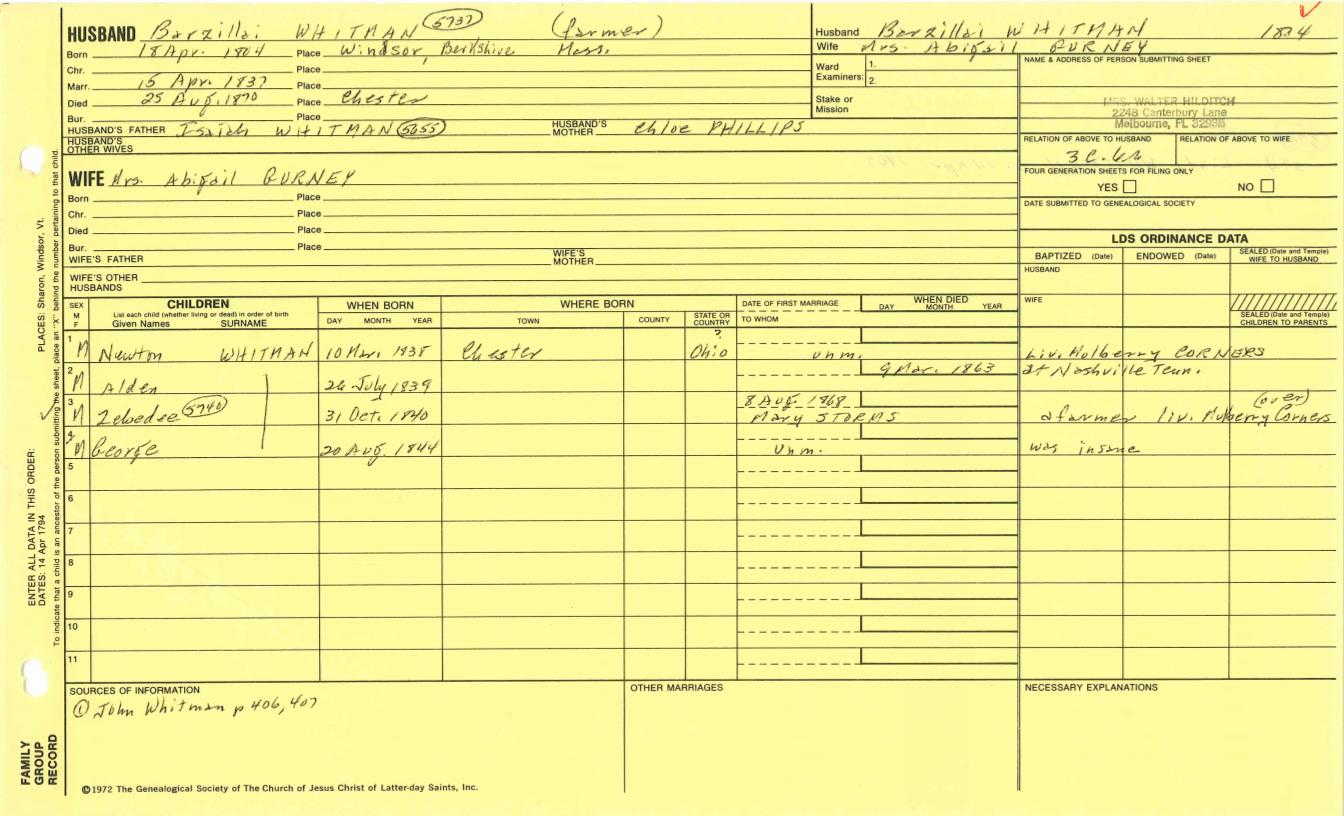 HUSBAND Barzillai WHITMAN 5737 (farmer)
Born 18 Apr. 1804 Place Windsor, Berkshire Mass.
Chr. Place
Marr. 15 Apr. 1837 Place
Died 25 Aug. 1870 Place Chester
Bur. Place
HUSBAND'S FATHER Isaiah WHITMAN 5355 HUSBAND'S MOTHER Chloe PHILLIPS
HUSBAND'S OTHER WIVES
WIFE Mrs. Abigail GURNEY
Born Place
Chr. Place
Died Place
Bur. Place
WIFE'S FATHER WIFE'S MOTHER
WIFE'S OTHER HUSBANDS
Husband Barzillai WHITMAN 1804
Wife Mrs. Abigail GURNEY
Ward Examiners: 1. 2.
Stake or Mission
NAME & ADDRESS OF PERSON SUBMITTING SHEET
MRS. WALTER HILDITCH
2248 Canterbury Lane
Melbourne, FL
RELATION OF ABOVE TO HUSBAND RELATION OF ABOVE TO WIFE
3C.
FOUR GENERATION SHEETS FOR FILING ONLY
YES NO
DATE SUBMITTED TO GENEALOGICAL SOCIETY
LDS ORDINANCE DATA
BAPTIZED (Date) ENDOWED (Date) SEALED (Date and Temple) WIFE TO HUSBAND
HUSBAND
WIFE
SEALED (Date and Temple) CHILDREN TO PARENTS
SEX M F CHILDREN WHEN BORN WHERE BORN DATE OF FIRST MARRIAGE WHEN DIED
List each child (whether living or dead) in order of birth
Given Names SURNAME DAY MONTH YEAR TOWN COUNTY STATE OR COUNTRY TO WHOM DAY MONTH YEAR
1 M Newton WHITMAN 10 Mar. 1838 Chester ? Ohio unm. Liv. Mulberry CORNERS
2 M Alden 26 July 1839 9 Mar. 1863 at Nashville Tenn.
3 M Zebedee 5740 31 Oct. 1840 8 Aug. 1868 Mary STORMS a farmer liv. Mulberry Corners (over)
4 M George 20 Aug. 1844 Unm. was insane
5
6
7
8
9
10
11
SOURCES OF INFORMATION
① John Whitman p 406, 407
OTHER MARRIAGES
NECESSARY EXPLANATIONS
©1972 The Genealogical Society of The Church of Jesus Christ of Latter-day Saints, Inc.
FAMILY GROUP RECORD
ENTER ALL DATA IN THIS ORDER:
DATES: 14 Apr 1794 PLACES: Sharon, Windsor, Vt.
To indicate that a child is an ancestor of the person submitting the sheet, place an "X" behind the number pertaining to that child.